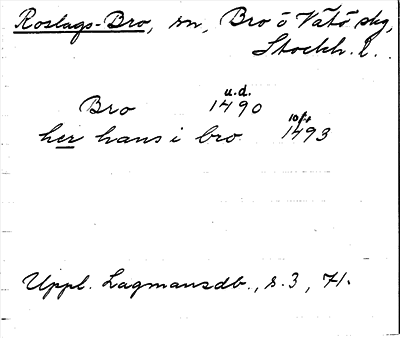 Roslags-Bro, sn, Bro o Vätö skg,
Stockh. l.
Bro u.d. 1490
her hans i bro 10/4 1493
Uppl. Lagmansdb., s. 3, 71.